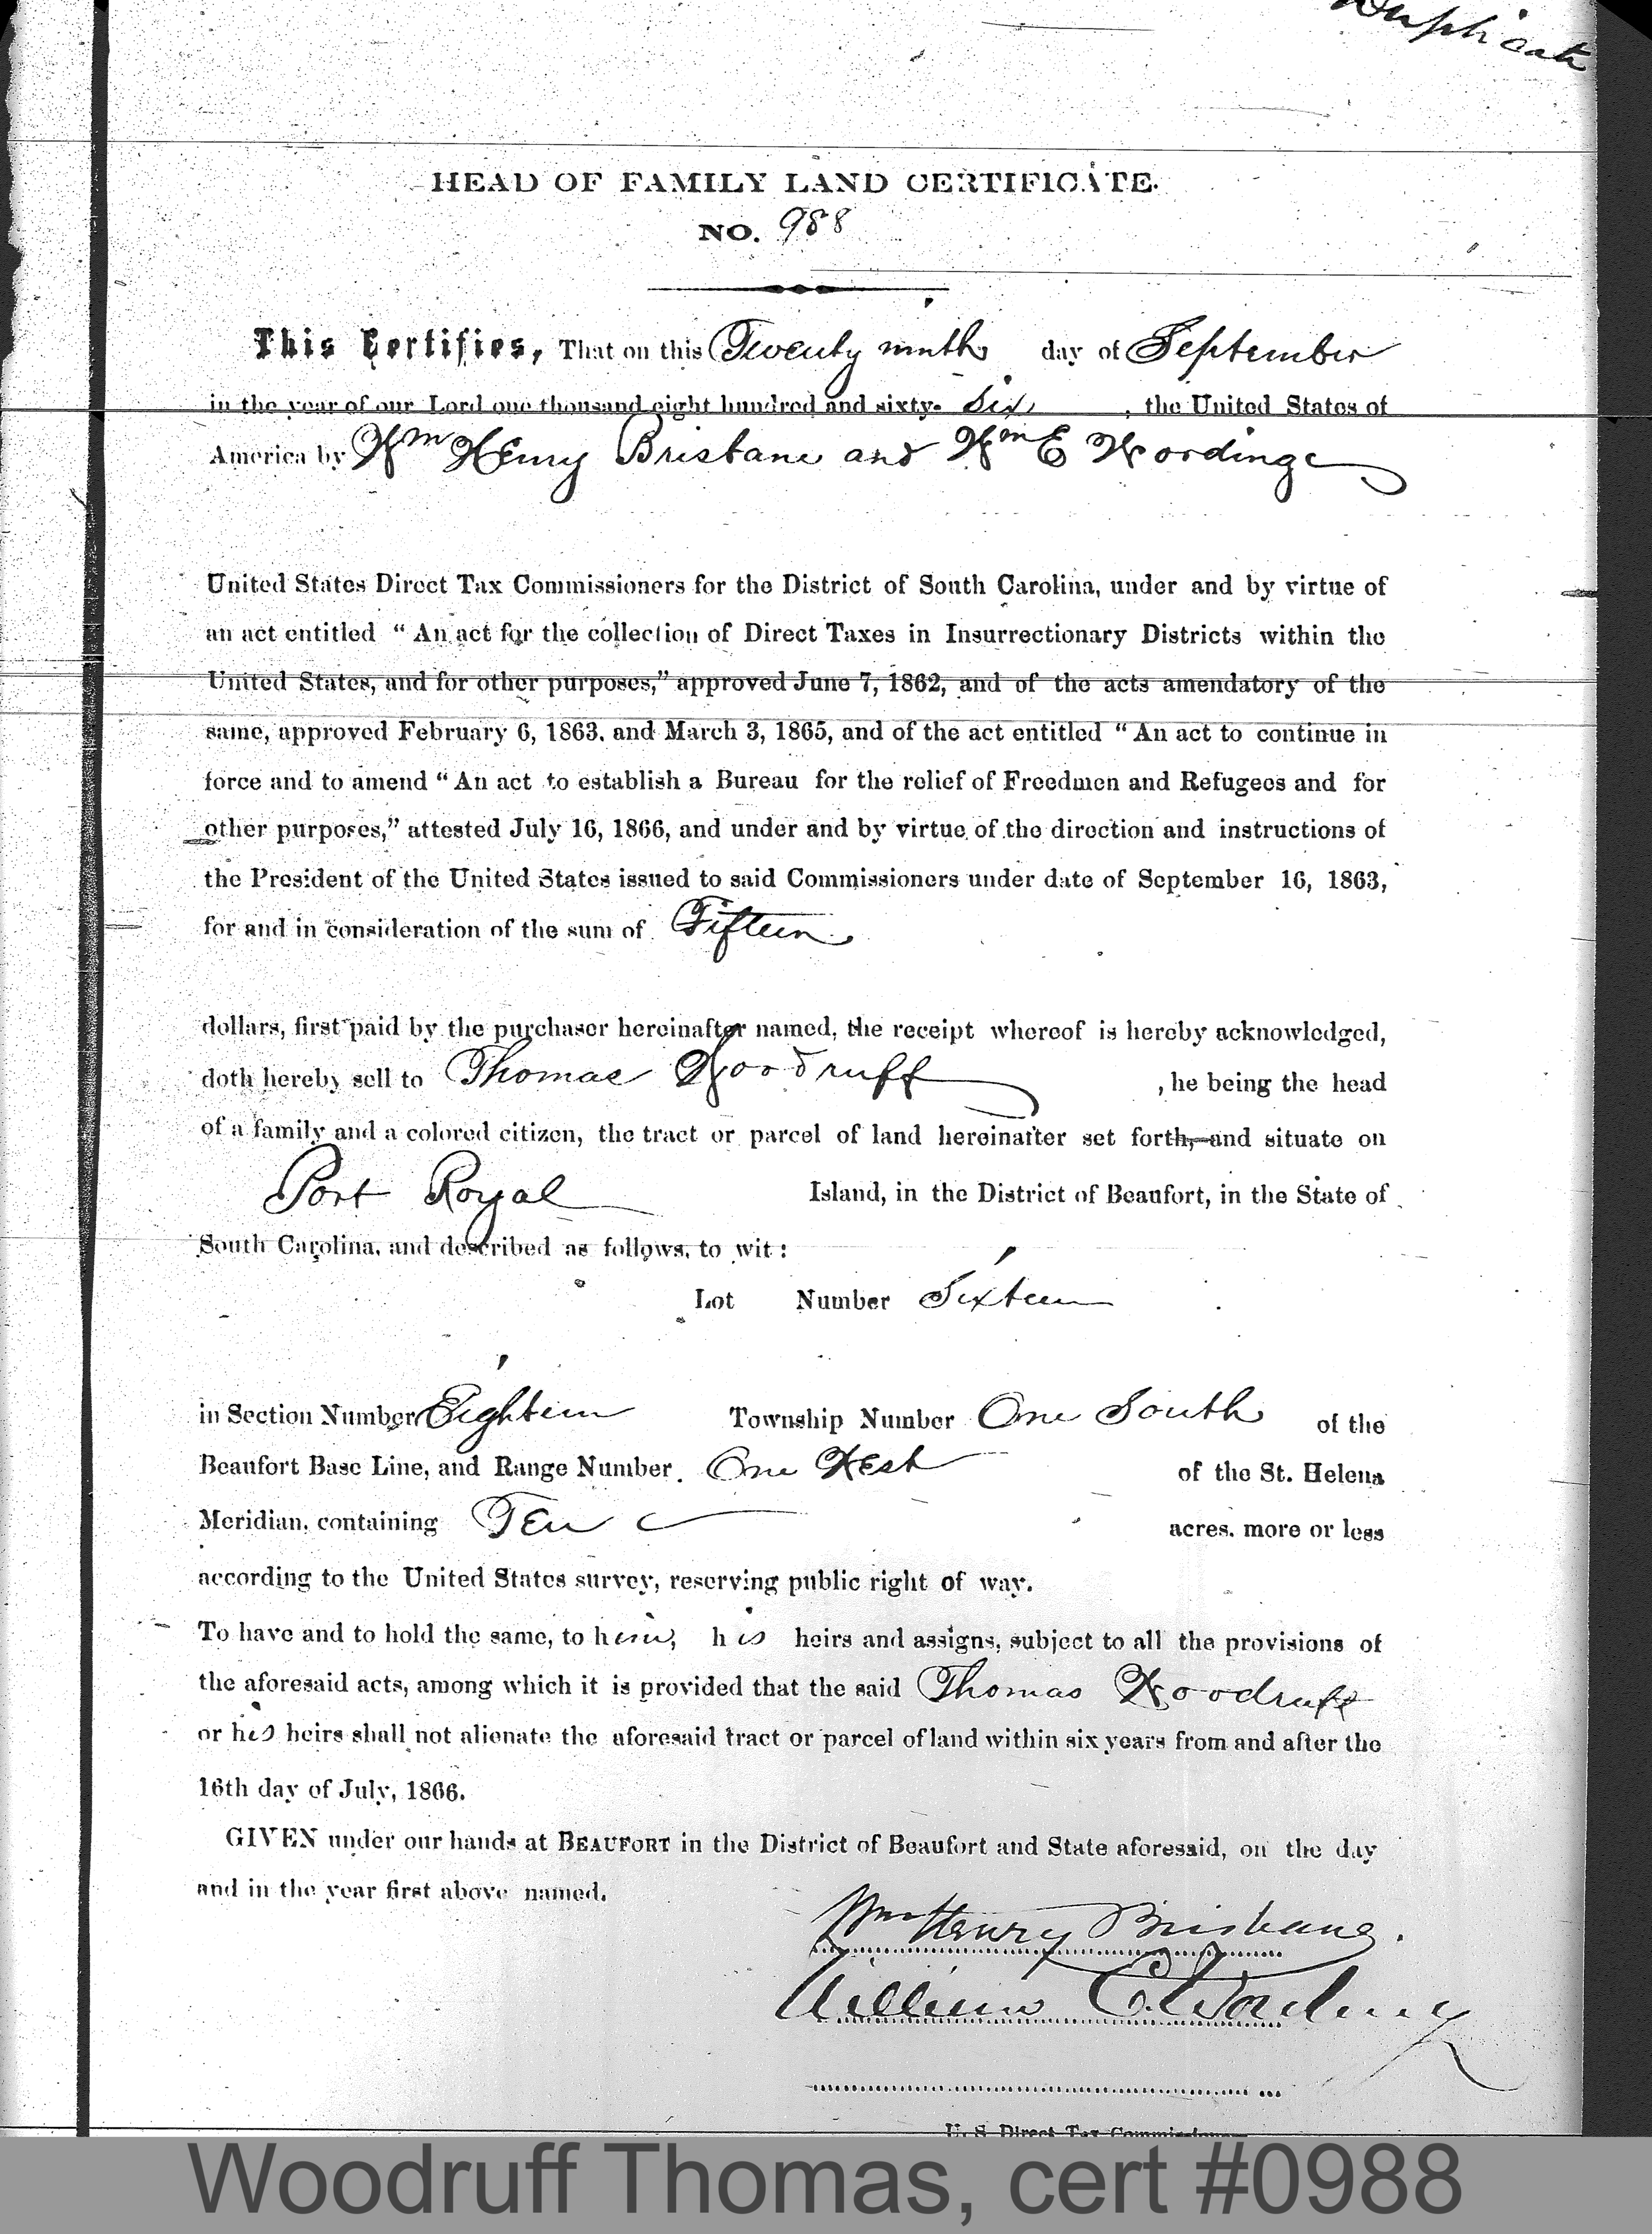 Duplicate
HEAD OF FAMILY LAND CERTIFICATE.
NO. 988
This Certifies, That on this Twenty ninth day of September
in the year of our Lord one thousand eight hundred and sixty- six, the United States of
America by Wm Henry Brisbane and Wm E Wording
United States Direct Tax Commissioners for the District of South Carolina, under and by virtue of
an act entitled "An act for the collection of Direct Taxes in Insurrectionary Districts within the
United States, and for other purposes," approved June 7, 1862, and of the acts amendatory of the
same, approved February 6, 1863. and March 3, 1865, and of the act entitled "An act to continue in
force and to amend "An act to establish a Bureau for the relief of Freedmen and Refugees and for
other purposes," attested July 16, 1866, and under and by virtue of the direction and instructions of
the President of the United States issued to said Commissioners under date of September 16, 1863,
for and in consideration of the sum of Fifteen
dollars, first paid by the purchaser hereinafter named, the receipt whereof is hereby acknowledged,
doth hereby sell to Thomas Woodruff , he being the head
of a family and a colored citizen, the tract or parcel of land hereinafter set forth, and situate on
Port Royal Island, in the District of Beaufort, in the State of
South Carolina, and described as follows, to wit:
Lot Number Sixteen
in Section Number Eighteen Township Number One South of the
Beaufort Base Line, and Range Number One West of the St. Helena
Meridian, containing Ten acres, more or less
according to the United States survey, reserving public right of way.
To have and to hold the same, to him, his heirs and assigns, subject to all the provisions of
the aforesaid acts, among which it is provided that the said Thomas Woodruff
or his heirs shall not alienate the aforesaid tract or parcel of land within six years from and after the
16th day of July, 1866.
GIVEN under our hands at BEAUFORT in the District of Beaufort and State aforesaid, on the day
and in the year first above named.
Wm Henry Brisbane.
William E. Wording
U. S. Direct Tax Commissioners
Woodruff Thomas, cert #0988